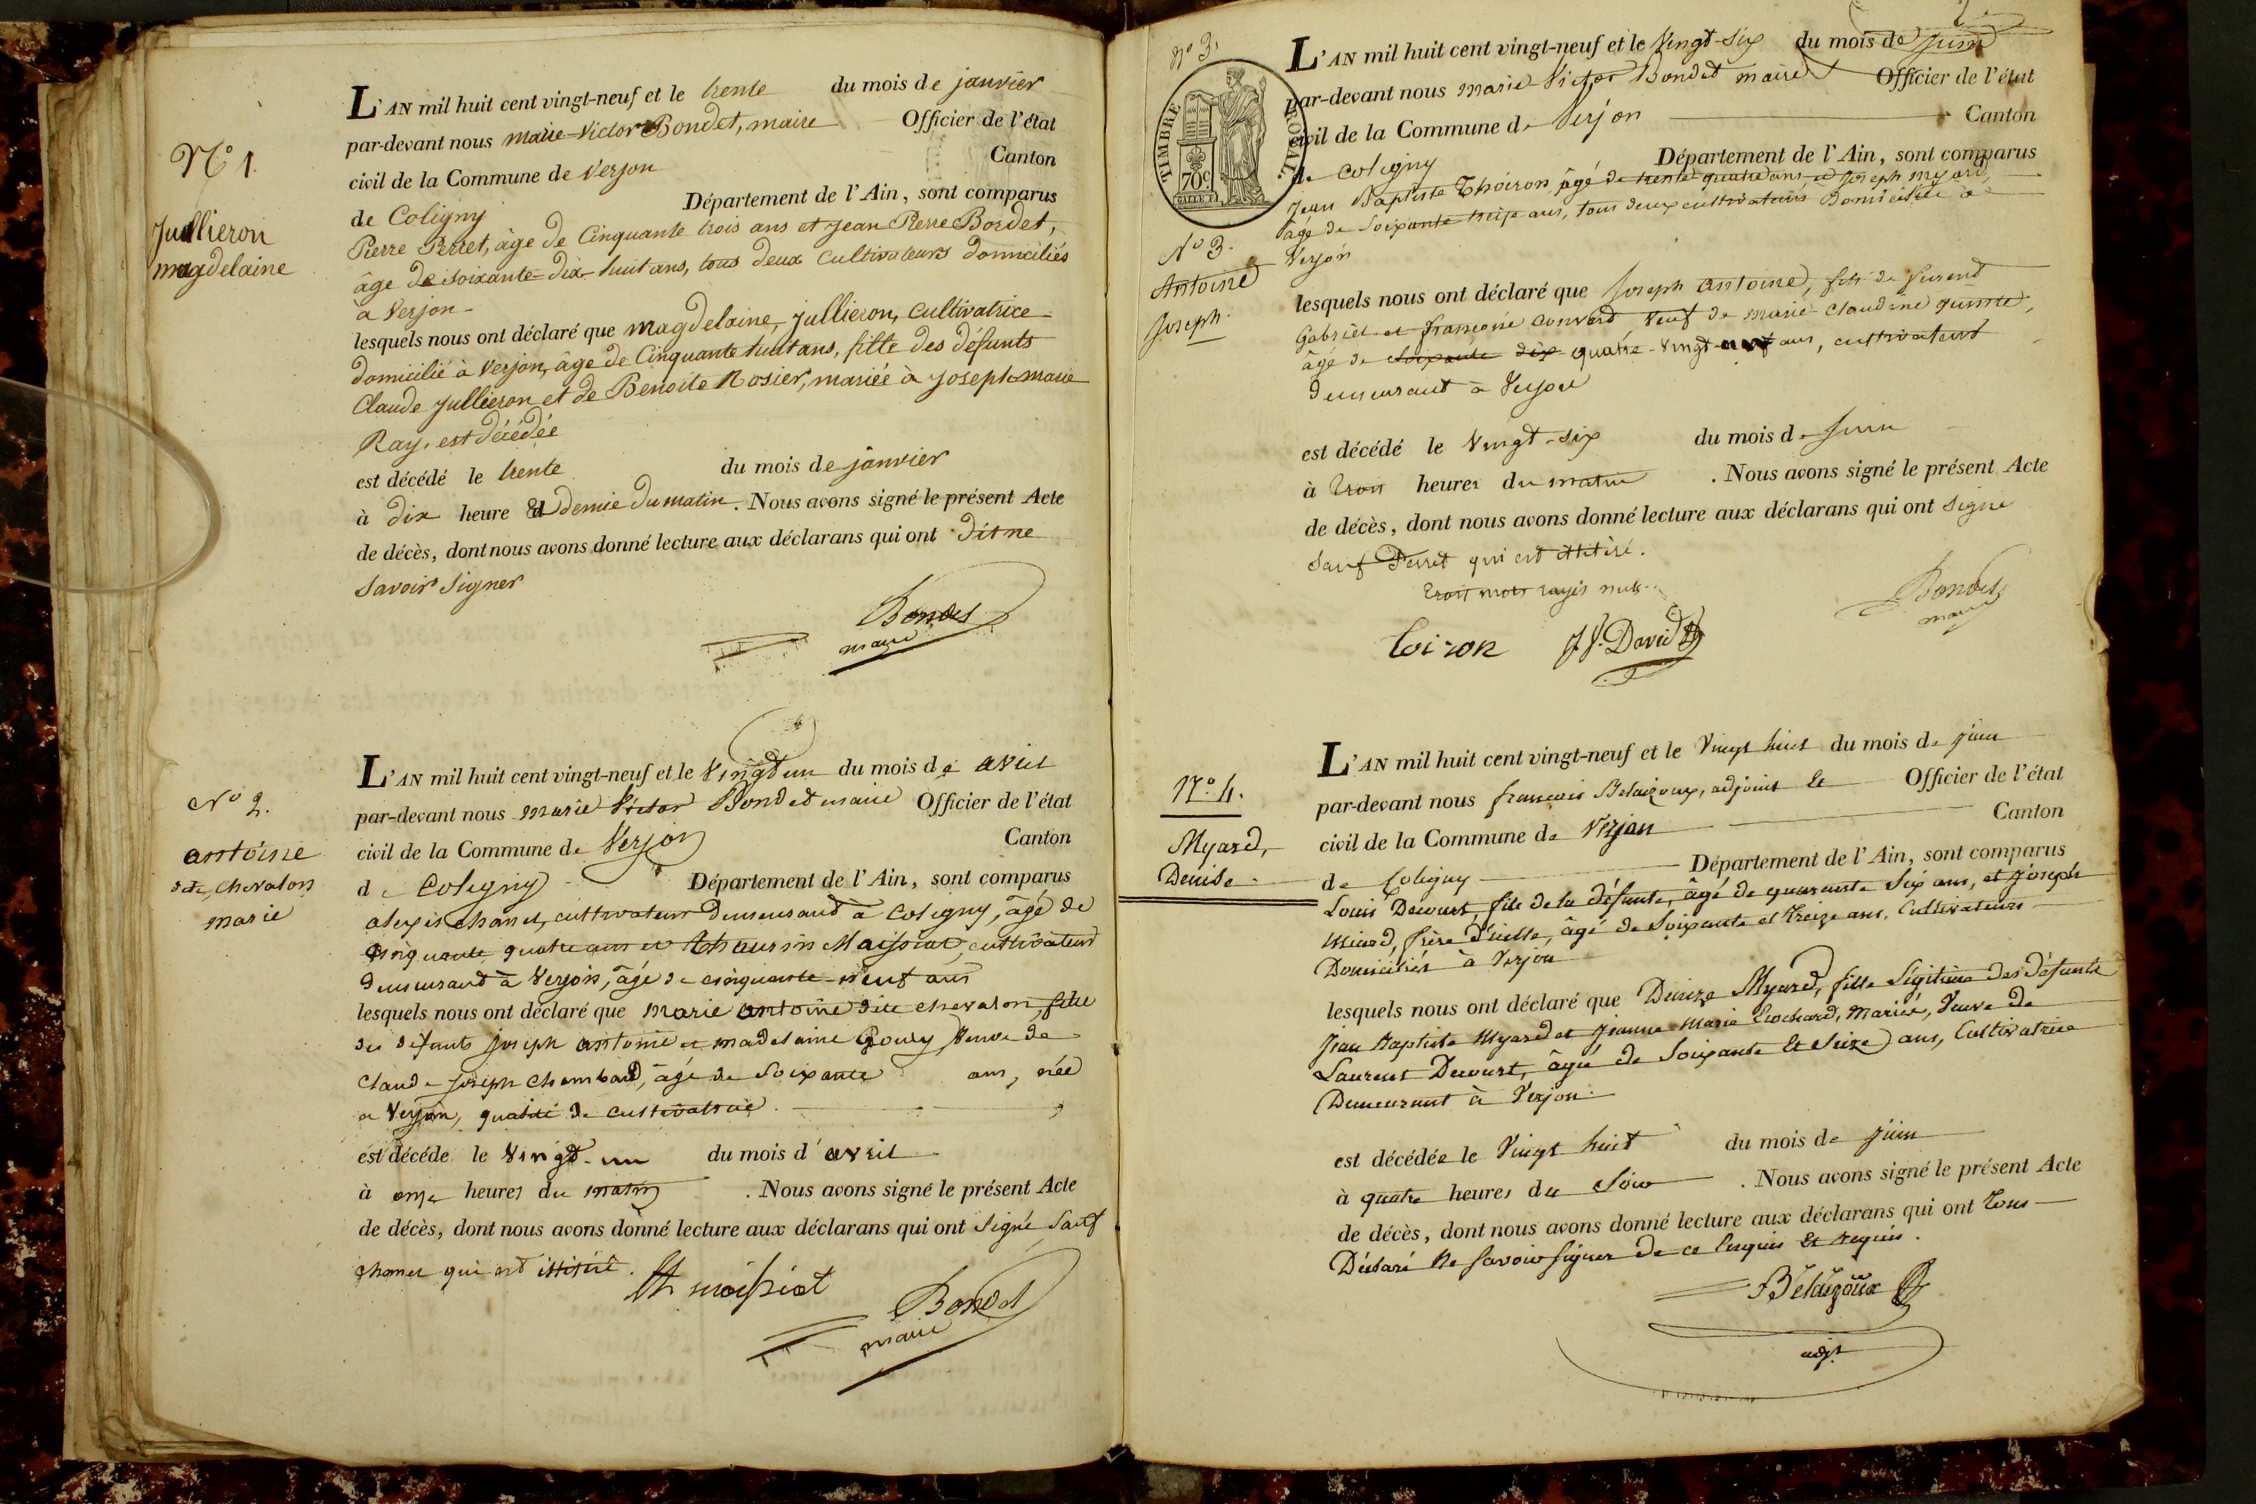 N° 1.
Jullieron
magdelaine
L'AN mil huit cent vingt-neuf et le trente du mois de janvier
par-devant nous marie-Victor Bondet, maire Officier de l'état
civil de la Commune de Verjon Canton
de Coligny Département de l'Ain, sont comparus
Pierre Perret, âge de Cinquante trois ans et jean Pierre Bordet,
âge de soixante-dix-huit ans, tous deux cultivateurs domiciliés
à Verjon
lesquels nous ont déclaré que magdelaine, jullieron, cultivatrice
domicilié à Verjon, âge de Cinquante huit ans, fille des défunts
Claude jullieron et de Benoite Rosier, mariée à joseph marie
Ray, est décédée
est décédé le trente du mois de janvier
à dix heure et demie du matin. Nous avons signé le présent Acte
de décès, dont nous avons donné lecture aux déclarans qui ont dit ne
savoir signer
Bondet
maire
N° 2.
antoine
dite chevalon
marie
L'AN mil huit cent vingt-neuf et le vingt un du mois de avril
par-devant nous marie Victor Bondet maire Officier de l'état
civil de la Commune de Verjon Canton
de Coligny Département de l'Ain, sont comparus
alexis chanel, cultivateur demeurand à Coligny, âgé de
cinquante quatre ans et thaurin Maissiat, cultivateur
demeurand à Verjon, âgé de cinquante-neuf ans
lesquels nous ont déclaré que marie antoine dite chevalon, fille
des défunts joseph antoine et madelaine veuve de
Claude joseph chambard, âgé de soixante ans, née
a Verjon, qualité de cultivatrice.
est décédé le vingt-un du mois d'avril
à onze heures du matin. Nous avons signé le présent Acte
de décès, dont nous avons donné lecture aux déclarans qui ont signé sauf
chanel qui est illitéré.
th maissiat
Bondet
maire
N° 3.
TIMBRE ROYAL
70 c
N° 3.
Antoine
joseph.
L'AN mil huit cent vingt-neuf et le vingt-six du mois de juin
par-devant nous marie Victor Bondet maire Officier de l'état
civil de la Commune de Verjon Canton
de Coligny Département de l'Ain, sont comparus
jean Baptiste Thoiron, âgé de trente quatre ans et joseph myard,
âgé de soixante treize ans, tous deux cultivateurs domiciliés à
Verjon
lesquels nous ont déclaré que joseph antoine, fils de
Gabriel et françoise convard veuf de marie claudine
âgé de soixante dix quatre-vingt ans, cultivateur
demeurant à Verjon
est décédé le vingt-six du mois de juin
à trois heures du matin. Nous avons signé le présent Acte
de décès, dont nous avons donné lecture aux déclarans qui ont signé
sauf Perret qui est illitéré.
trois mots rayés nuls.
Bondet
maire
toiron J. J. David
N° 4.
Myard,
Denise
L'AN mil huit cent vingt-neuf et le vingt huit du mois de juin
par-devant nous françois Belaizoux, adjoint et Officier de l'état
civil de la Commune de Verjon Canton
de Coligny Département de l'Ain, sont comparus
Louis Decourt, fils de la défunte, âgé de quarante six ans, et joseph
Miard, frère d'icelle, âgé de soixante et treize ans, Cultivateurs
Domiciliés à Verjon
lesquels nous ont déclaré que Denize Myard, fille légitime des défunts
jean Baptiste Myard et jeanne Marie Mariée, Veuve de
Laurent Decourt, âgée de soixante et seize ans, Cultivatrice
Demeurant à Verjon.
est décédée le vingt huit du mois de juin
à quatre heures du soir. Nous avons signé le présent Acte
de décès, dont nous avons donné lecture aux déclarans qui ont tous
Déclaré Ne savoir signer de ce Enquis et requis.
Belaizoux
adjt